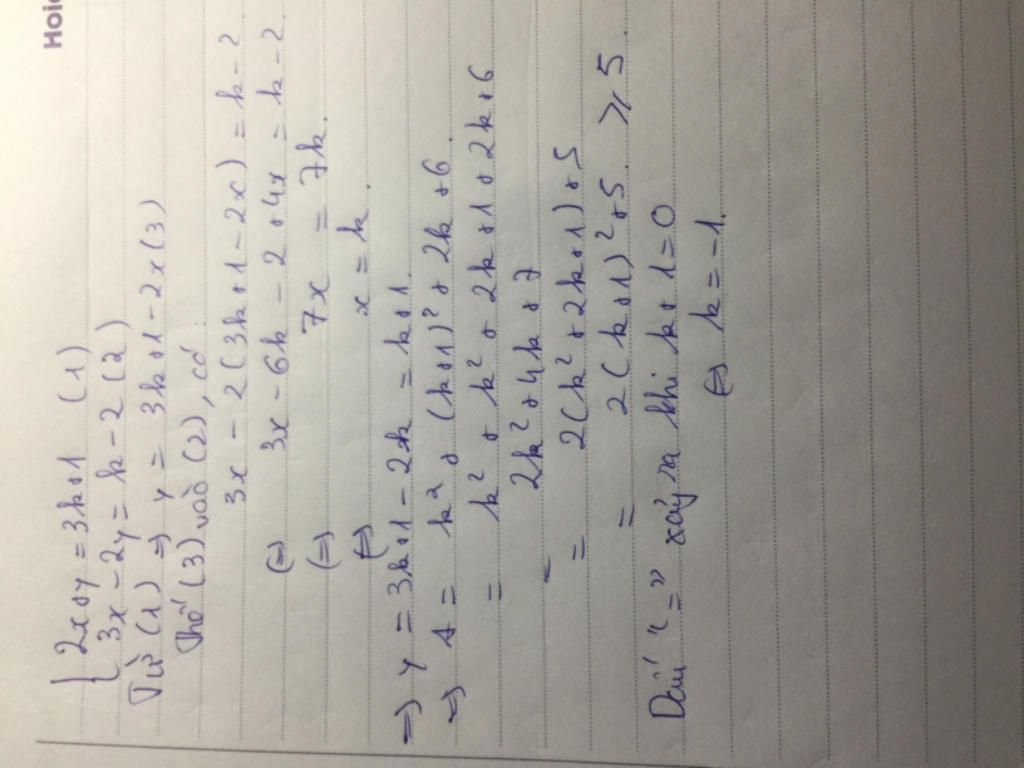 Hoid
{ 2x+y = 3k+1 (1)
3x-2y = k-2 (2)
Từ (1) => y = 3k+1-2x (3)
Thế (3) vào (2), có:
3x - 2(3k+1-2x) = k-2
(=) 3x - 6k - 2 + 4x = k-2
(=) 7x = 7k.
(=) x = k.
=> y = 3k+1-2k = k+1.
=> A = k² + (k+1)² + 2k + 6.
= k² + k² + 2k + 1 + 2k + 6
= 2k² + 4k + 7
= 2(k² + 2k + 1) + 5
= 2(k+1)² + 5. ≥ 5.
Dấu "=" xảy ra khi k+1 = 0
(=) k = -1.